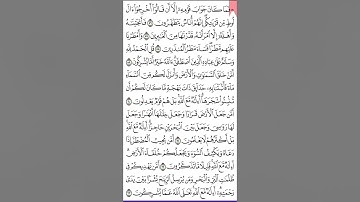 ۞ فَمَا كَانَ جَوَابَ قَوْمِهِۦٓ إِلَّآ أَن قَالُوٓا۟ أَخْرِجُوٓا۟ ءَالَ
لُوطٍ مِّن قَرْيَتِكُمْ إِنَّهُمْ أُنَاسٌ يَتَطَهَّرُونَ ٥٦ فَأَنجَيْنَٰهُ
وَأَهْلَهُۥٓ إِلَّا ٱمْرَأَتَهُۥ قَدَّرْنَٰهَا مِنَ ٱلْغَٰبِرِينَ ٥٧ وَأَمْطَرْنَا
عَلَيْهِم مَّطَرًا فَسَآءَ مَطَرُ ٱلْمُنذَرِينَ ٥٨ قُلِ ٱلْحَمْدُ لِلَّهِ
وَسَلَٰمٌ عَلَىٰ عِبَادِهِ ٱلَّذِينَ ٱصْطَفَىٰٓ ءَآللَّهُ خَيْرٌ أَمَّا يُشْرِكُونَ ٥٩
أَمَّنْ خَلَقَ ٱلسَّمَٰوَٰتِ وَٱلْأَرْضَ وَأَنزَلَ لَكُم مِّنَ ٱلسَّمَآءِ
مَآءً فَأَنۢبَتْنَا بِهِۦ حَدَآئِقَ ذَاتَ بَهْجَةٍ مَّا كَانَ لَكُمْ أَن
تُنۢبِتُوا۟ شَجَرَهَآ أَءِلَٰهٌ مَّعَ ٱللَّهِ بَلْ هُمْ قَوْمٌ يَعْدِلُونَ ٦٠
أَمَّن جَعَلَ ٱلْأَرْضَ قَرَارًا وَجَعَلَ خِلَٰلَهَآ أَنْهَٰرًا وَجَعَلَ
لَهَا رَوَٰسِىَ وَجَعَلَ بَيْنَ ٱلْبَحْرَيْنِ حَاجِزًا أَءِلَٰهٌ مَّعَ ٱللَّهِ
بَلْ أَكْثَرُهُمْ لَا يَعْلَمُونَ ٦١ أَمَّن يُجِيبُ ٱلْمُضْطَرَّ إِذَا
دَعَاهُ وَيَكْشِفُ ٱلسُّوٓءَ وَيَجْعَلُكُمْ خُلَفَآءَ ٱلْأَرْضِ
أَءِلَٰهٌ مَّعَ ٱللَّهِ قَلِيلًا مَّا تَذَكَّرُونَ ٦٢ أَمَّن يَهْدِيكُمْ فِى
ظُلُمَٰتِ ٱلْبَرِّ وَٱلْبَحْرِ وَمَن يُرْسِلُ ٱلرِّيَٰحَ بُشْرًۢا بَيْنَ يَدَىْ
رَحْمَتِهِۦٓ أَءِلَٰهٌ مَّعَ ٱللَّهِ تَعَٰلَى ٱللَّهُ عَمَّا يُشْرِكُونَ ٦٣